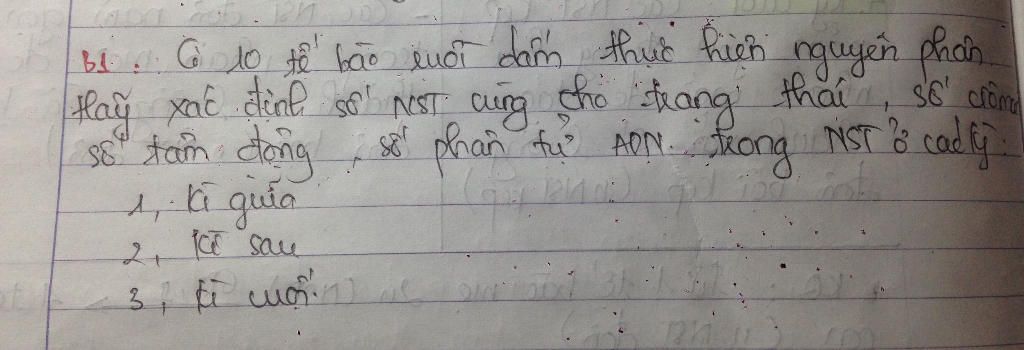 B1. Có 10 tế bào ruồi dấm thực hiện nguyên phân
Hãy xác định số NST cùng cho trạng thái, số crômatit
số tâm động, số phân tử ADN trong NST ở các kỳ:
1, kì giữa
2, kì sau
3, kì cuối.